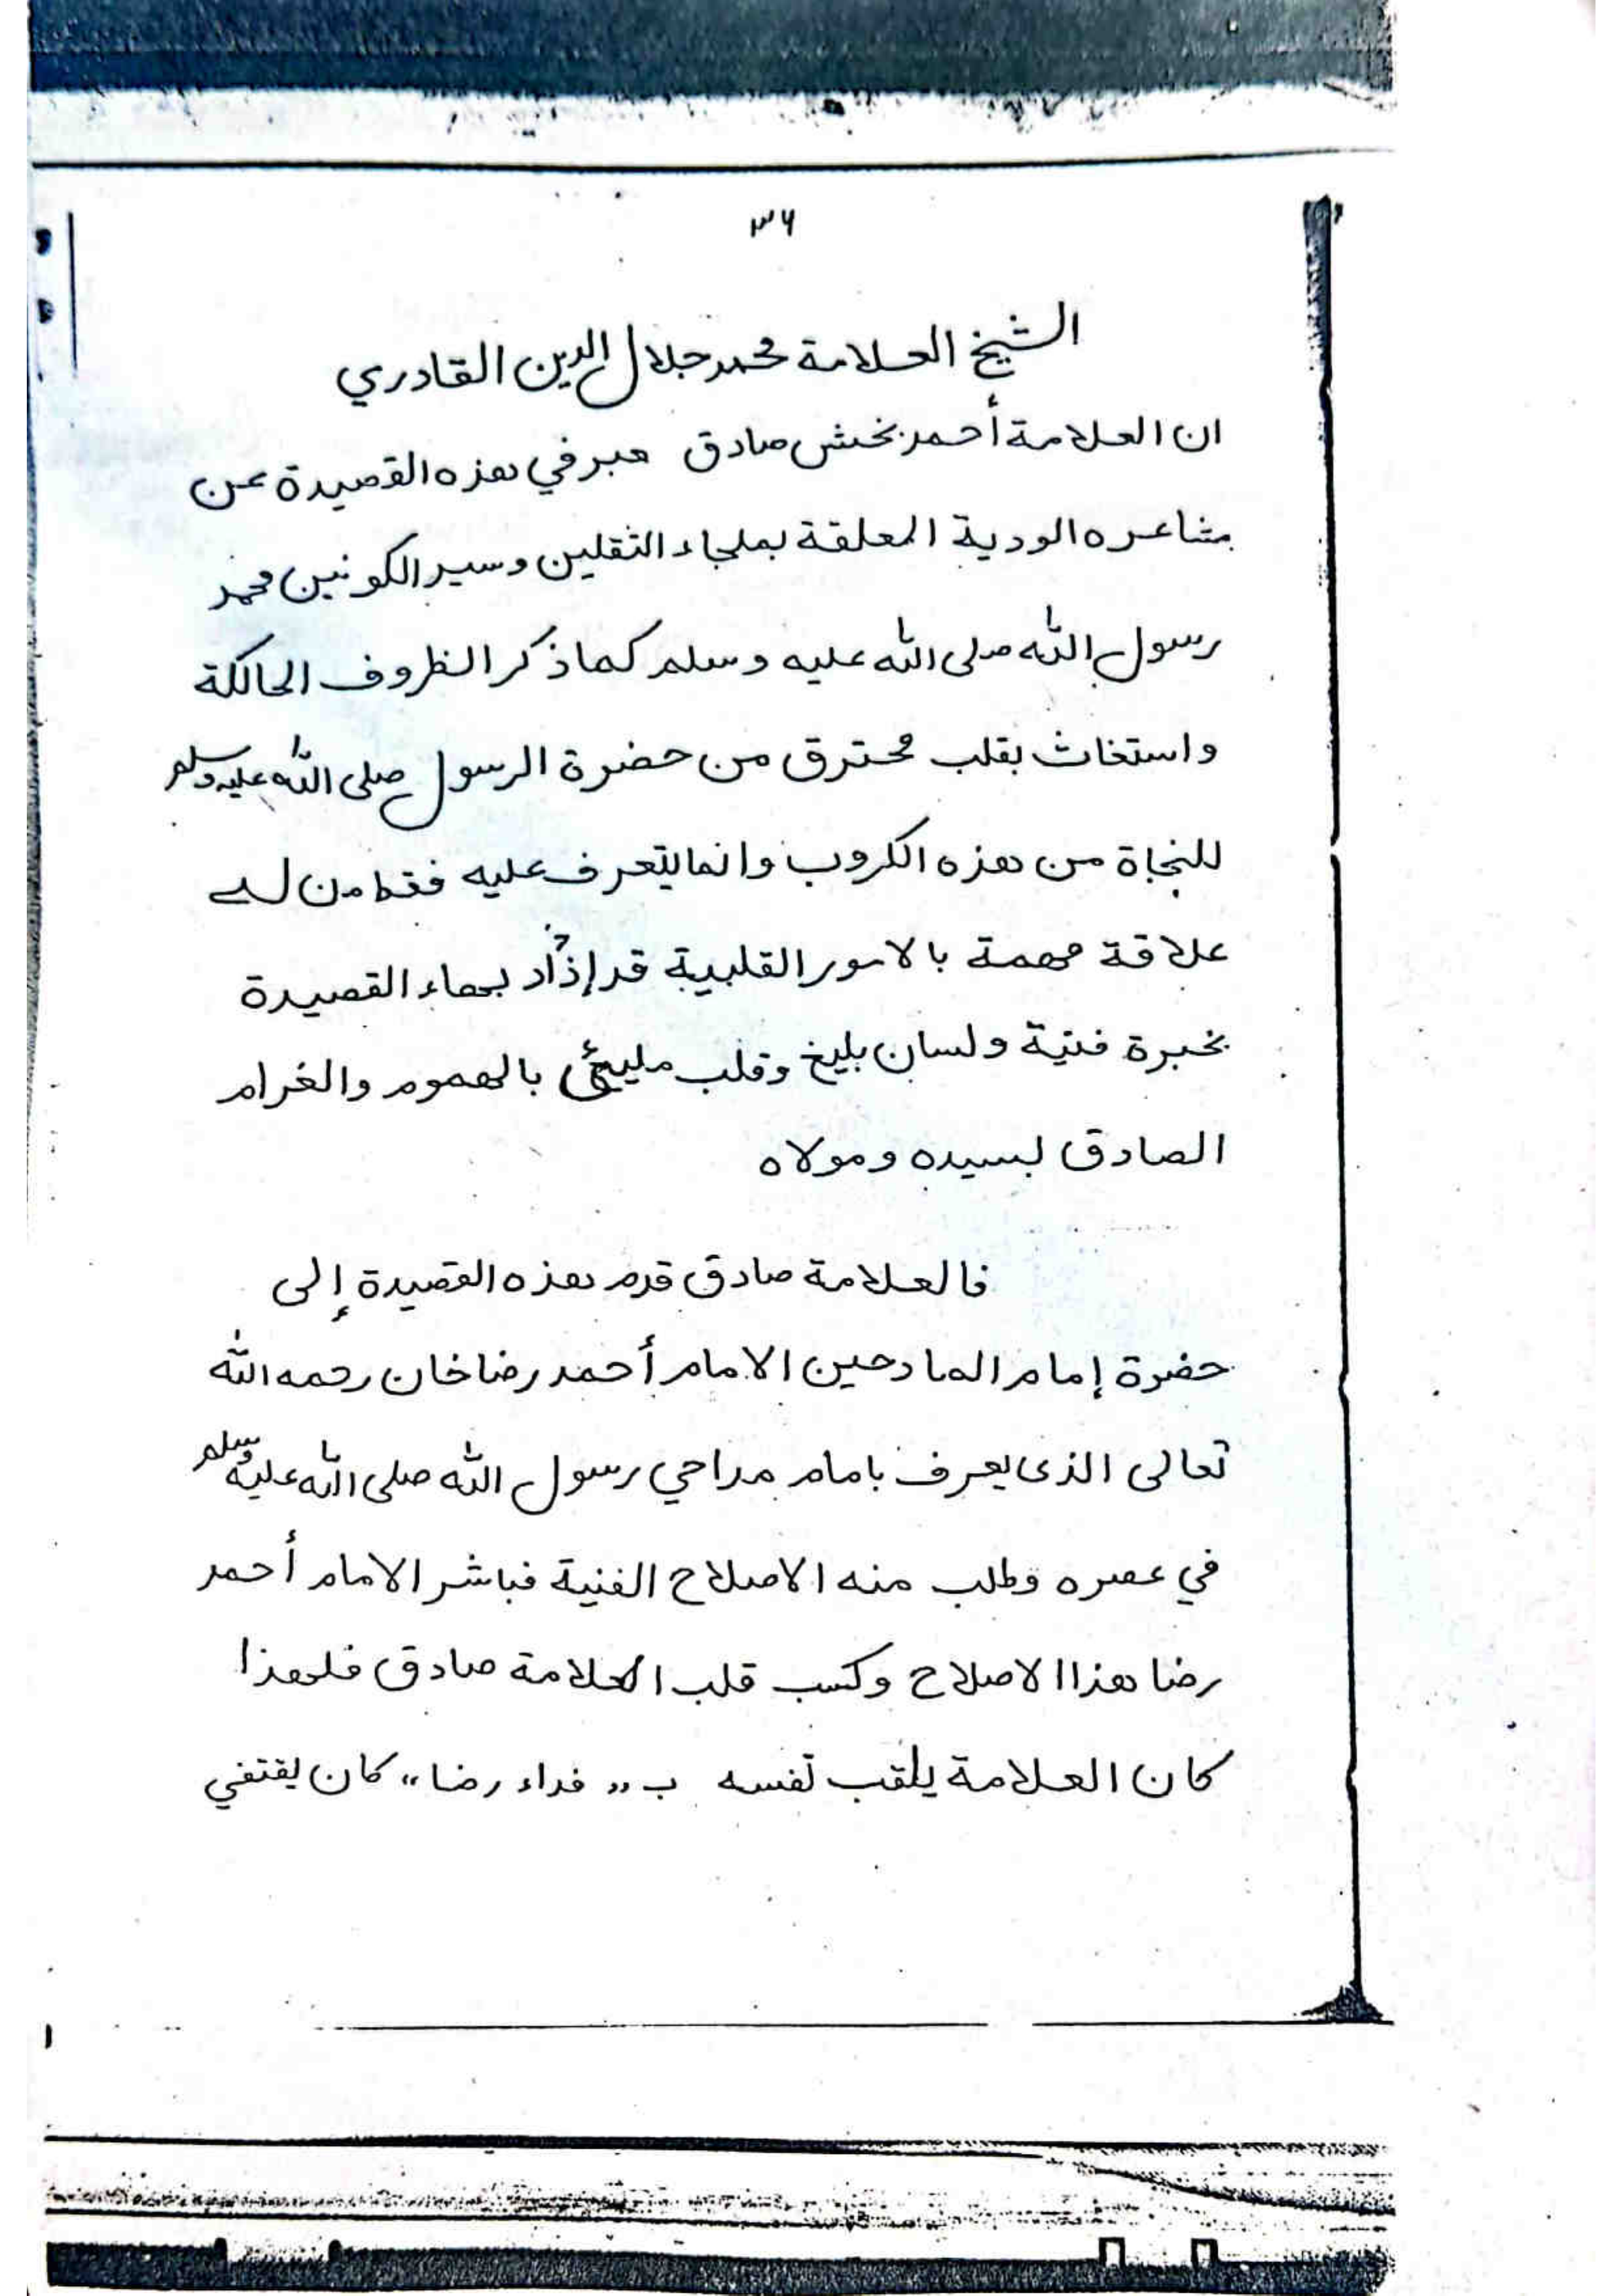 ۳۶
الشيخ العلامة محمد جلال الدين القادري
ان العلامة أحمد بخش صادق عبر في هذه القصيدة عن
مشاعره الودية المعلقة بملجاء الثقلين وسيد الكونين محمد
رسول الله صلى الله عليه وسلم كما ذكر الظروف الحالكة
واستغاث بقلب محترق من حضرة الرسول صلى الله عليه وسلم
للنجاة من هذه الكروب وانما يتعرف عليه فقط من له
علاقة مهمة بالامور القلبية قد إزداد بهاء القصيدة
بخبرة فنية ولسان بليغ وقلب مليئ بالهموم والغرام
الصادق لسيده ومولاه
فالعلامة صادق قدم هذه القصيدة إلى
حضرة إمام المادحين الامام أحمد رضا خان رحمه الله
تعالى الذى يعرف بامام مداحي رسول الله صلى الله عليه وسلم
في عصره وطلب منه الاصلاح الفنية فباشر الامام أحمد
رضا هذا الاصلاح وكسب قلب العلامة صادق فلهذا
كان العلامة يلقب نفسه ب ,, فداء رضا ،، كان يقتفي